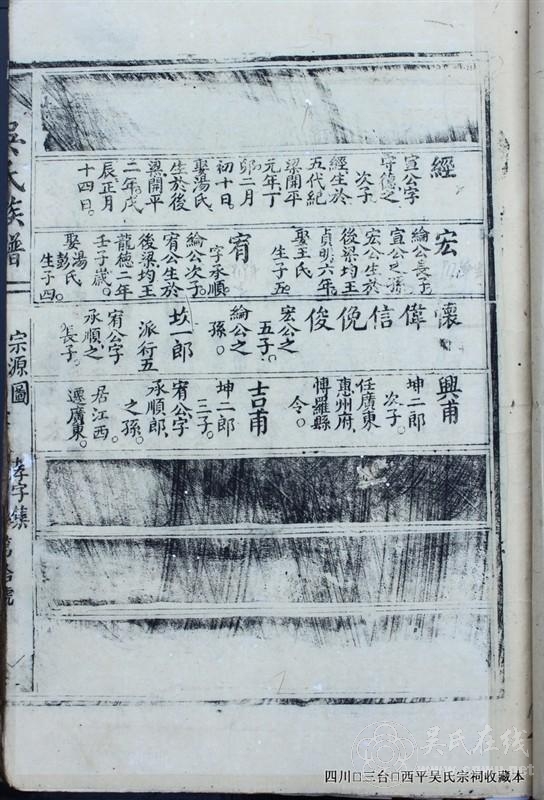 吳氏族譜
宗源圖
經
宣公字
守德之
次子
經生於
五代紀
梁開平
元年丁
卯二月
初十日。
娶湯氏、
生於後
梁開平
二年戊
辰正月
十四日。
宏
綸公長子
宣公之孫
宏公生於
後梁均王
貞明六年。
娶王氏
生子五。
宥
字承順。
綸公次子。
宥公生於
後梁均王
龍德二年
壬子歲。
娶湯氏
彭
生子四。
懷
偉
信
俛
俊
宏公之
五子。
綸公之
孫。
坎一郎
派行五
宥公字
承順之
長子。
興甫
坤二郎
次子。
任廣東
惠州府、
愽羅縣
令。
吉甫
坤二郎
三子。
宥公字
承順郎、
之孫。
居江西。
遷廣東。
四川□三台□西平吴氏宗祠收藏本
吴氏在线